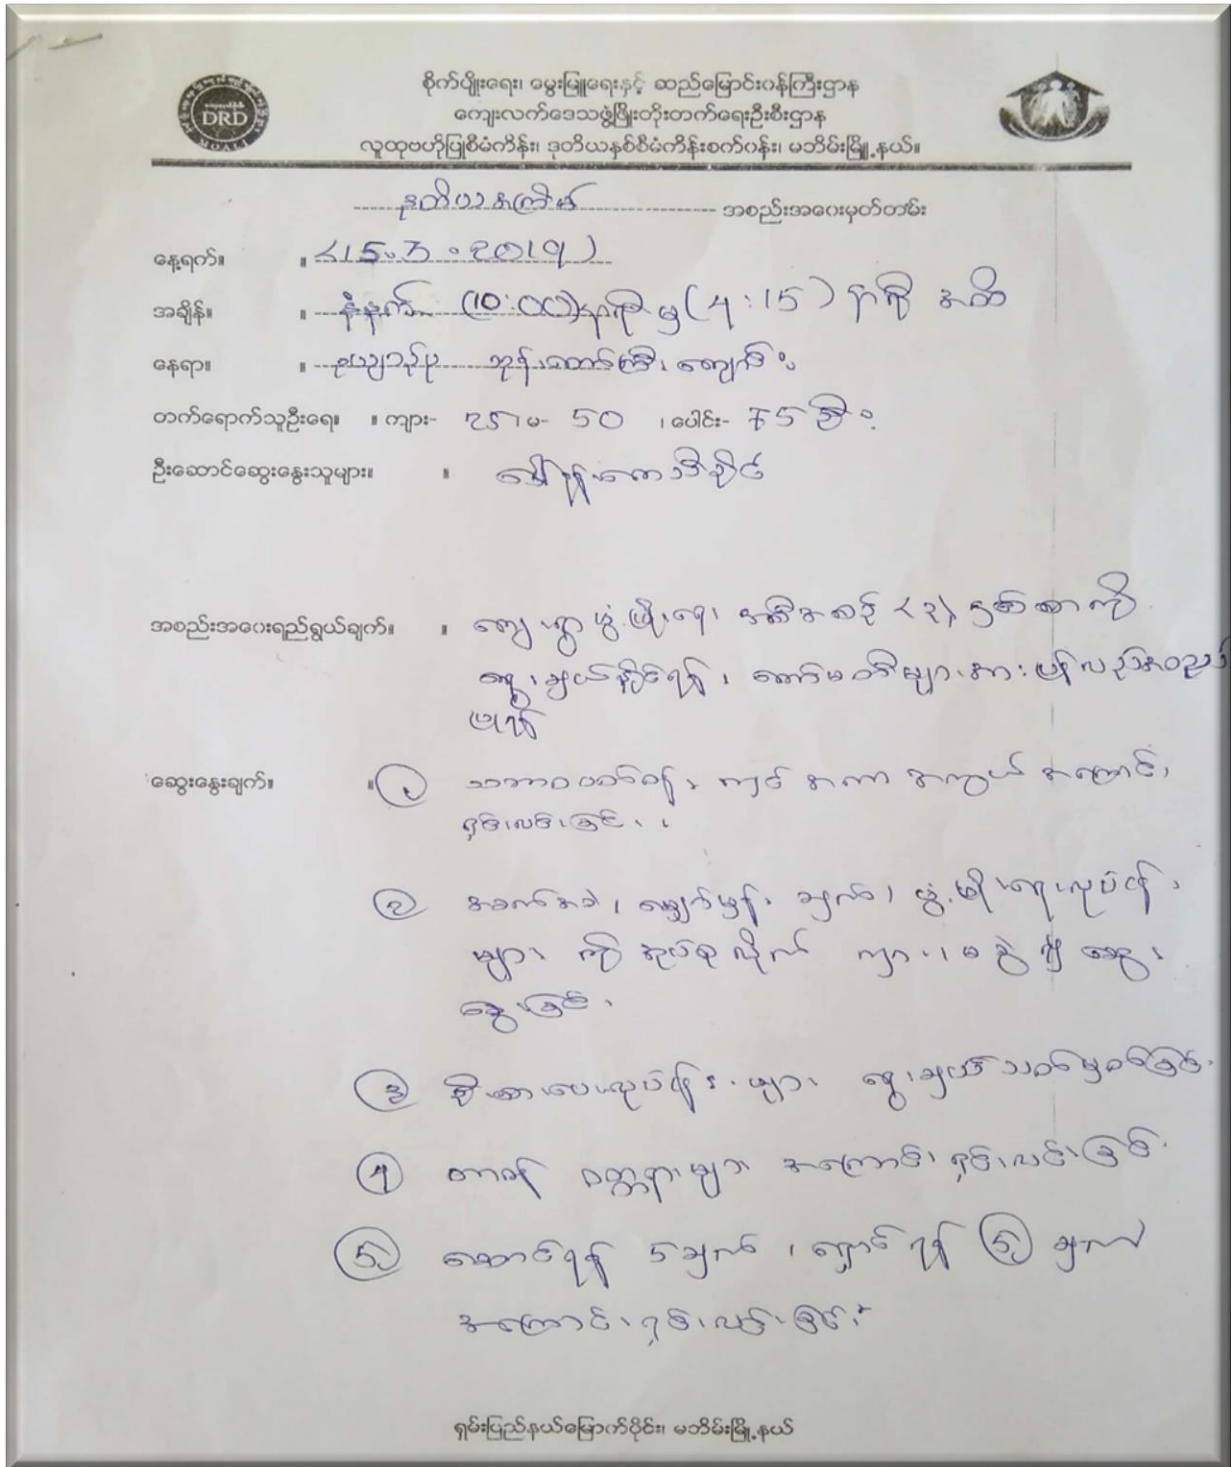 DRD
MOALI
စိုက်ပျိုးရေး၊ မွေးမြူရေးနှင့် ဆည်မြောင်းဝန်ကြီးဌာန
ကျေးလက်ဒေသဖွံ့ဖြိုးတိုးတက်ရေးဦးစီးဌာန
လူထုဗဟိုပြုစီမံကိန်း၊ ဒုတိယနှစ်စီမံကိန်းစက်ဝန်း၊ မဘိမ်းမြို့နယ်။
ဒုတိယအကြိမ် အစည်းအဝေးမှတ်တမ်း
နေ့ရက်။ ။ (15.3.2019)
အချိန်။ ။ နံနက် (10:00) နာရီမှ (4:15) နာရီ အထိ
နေရာ။ ။ ဘုန်းတော်ကြီး ကျောင်း
တက်ရောက်သူဦးရေ။ ။ ကျား- 25 ၊ မ- 50 ၊ ပေါင်း- 75 ဦး
ဦးဆောင်ဆွေးနွေးသူများ။ ။
အစည်းအဝေးရည်ရွယ်ချက်။ ။ ကျေးရွာဖွံ့ဖြိုးရေး အစီအစဉ် (၃) နှစ်စာကို
ရွေးချယ်နိုင်ရန်၊ ကော်မတီများအား ပြန်လည်
ဆွေးနွေးချက်။ ။ ၁ သဘာဝပတ်ဝန်းကျင် အကာအကွယ် အကြောင်း
ရှင်းလင်းခြင်း။
၂ အခက်အခဲ၊ မျှော်မှန်းချက်၊ ဖွံ့ဖြိုးရေးလုပ်ငန်း
များ ကို အုပ်စုလိုက် ကျား၊ မ ခွဲ၍ ဆွေး
နွေးခြင်း၊
၃ ဦးစားပေးလုပ်ငန်းများ ရွေးချယ်သတ်မှတ်ခြင်း
၄ တာဝန် ဝတ္တရားများ အကြောင်း ရှင်းလင်းခြင်း
5 ဆောင်ရန် 5 ချက်၊ ရှောင်ရန် 5 ချက်
အကြောင်း ရှင်းလင်းခြင်း။
ရှမ်းပြည်နယ်မြောက်ပိုင်း၊ မဘိမ်းမြို့နယ်